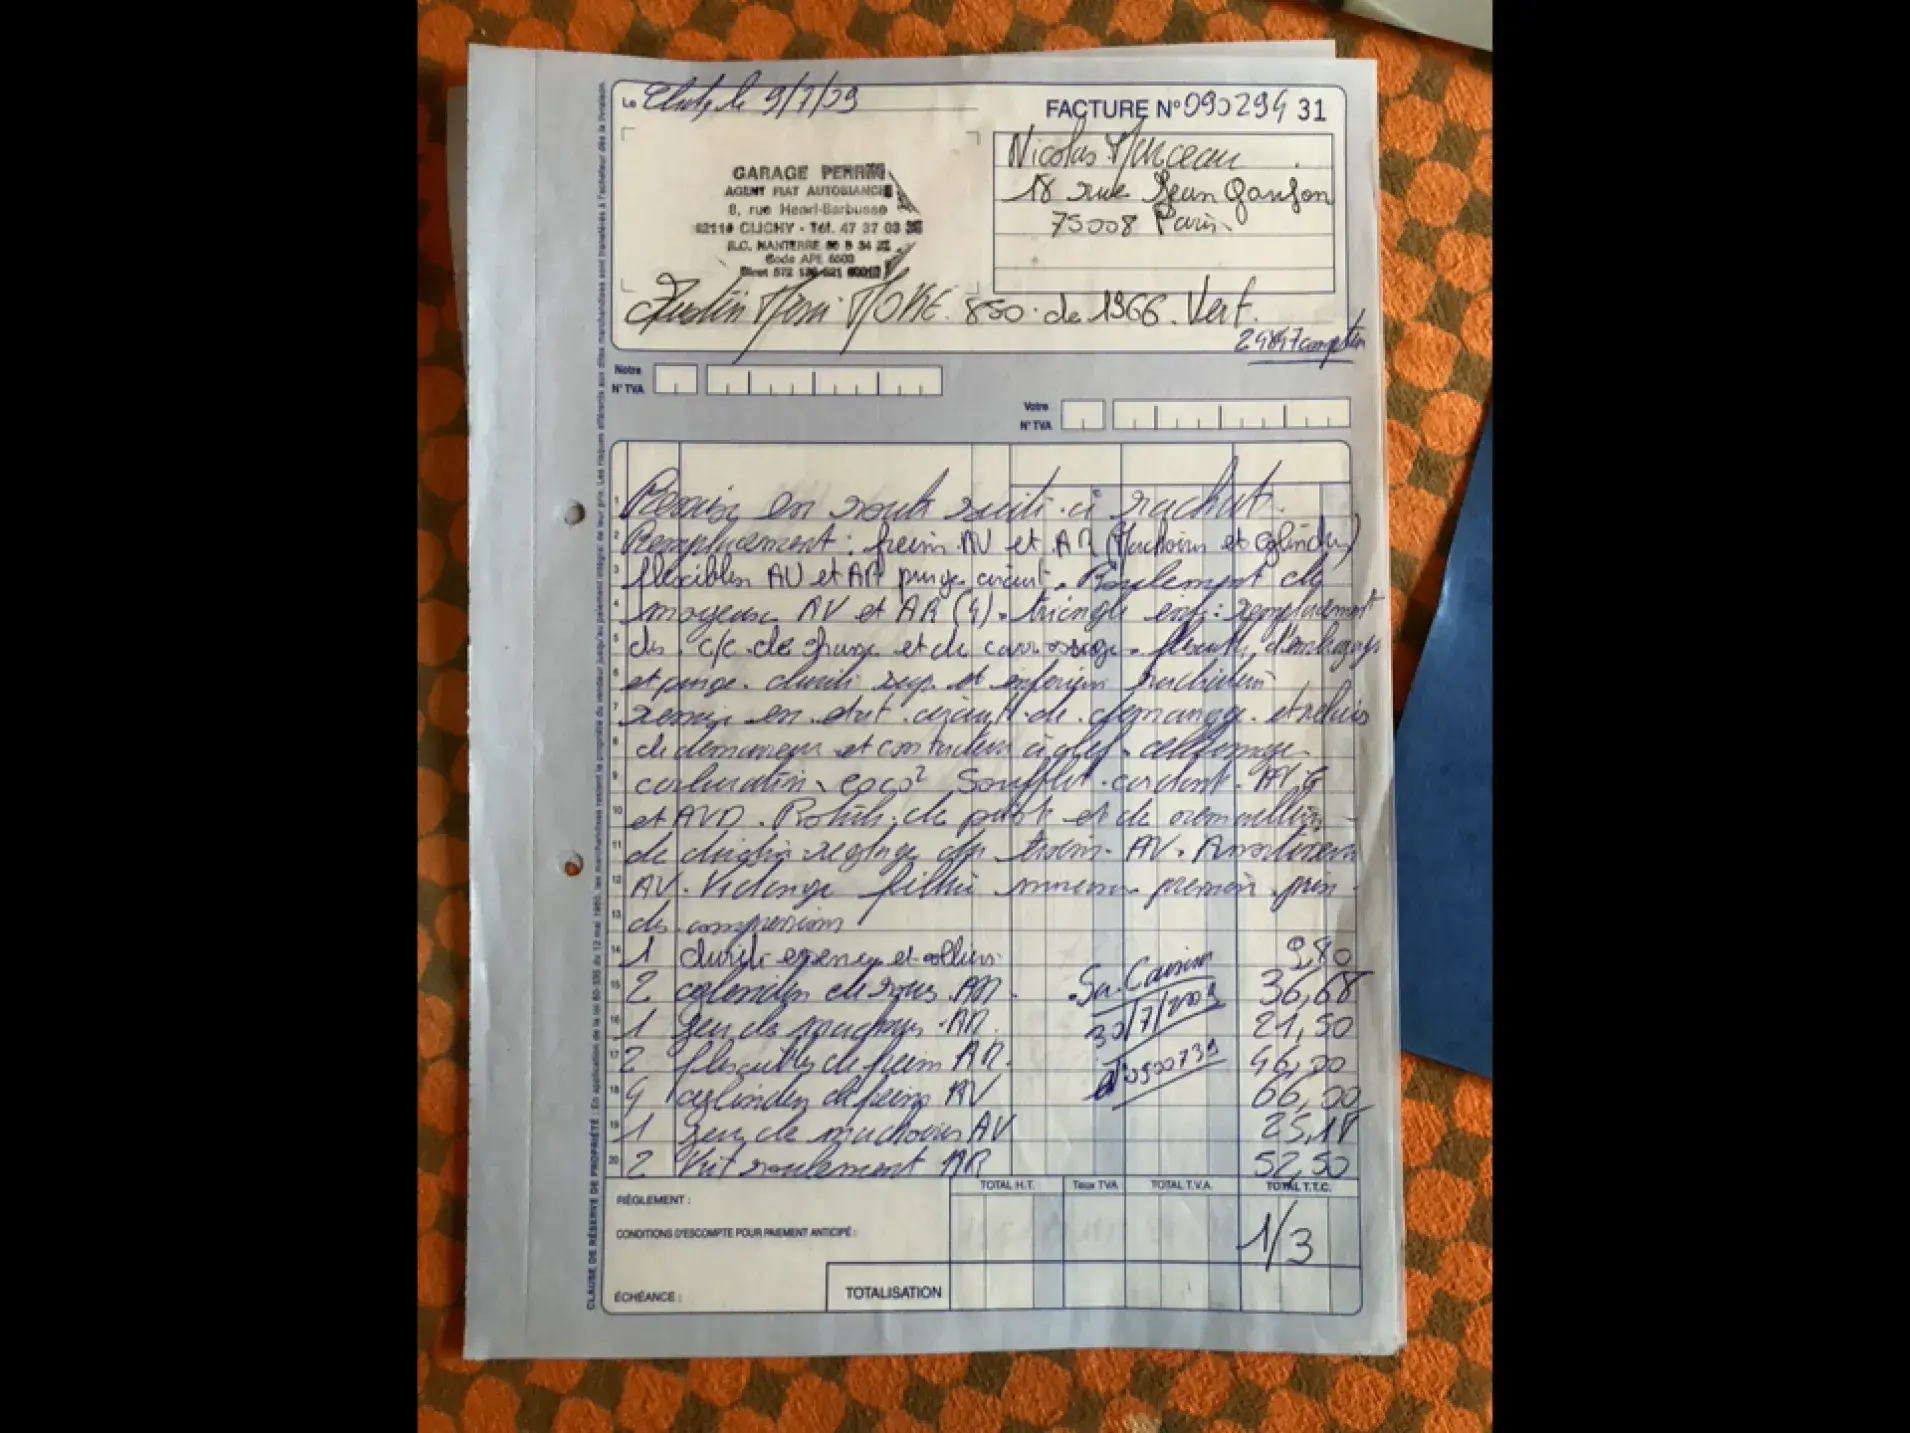 Le Clichy le 9/7/09
FACTURE N° 090294 31
GARAGE PERRIN
AGENT FIAT AUTOBIANCHI
8, rue Henri-Barbusse
92110 CLICHY - Tél. 47 37 03
R.C. NANTERRE
Code APE 6503
Siret 572
Nicolas
18 rue Jean
75008 Paris
Austin Mini MOKE. 850. de 1966. Vert.
compteur
Notre
N° TVA
Votre
N° TVA
Remise en route suite à rachat.
Remplacement : freins AV et AR (Machoires et cylindres)
flexibles AV et AR purge circuit. Roulement de
moyeux AV et AR (4). triangle inf : remplacement
des c/c de chasse et de carrossage. flexible d'embrayage
et purge. durite sup. et inférieure radiateur
remise en état circuit de démarrage et relais
de démarreur et contacteur à clef.
carburation, coco² Soufflet cardant AVG
et AVD. Rotule de pivot et de cremaillère
de direction reglage du train AV. Amortisseurs
AV. Vidange filtre niveaux pression pneu
des compressions
1 durite essence et colliers 9,80
2 cylindres de roues AR 36,68
1 jeu de machoires AR 21,50
2 flexibles de frein AR. 46,00
4 cylindres de freins AV 66,00
1 jeu de machoires AV 25,18
2 Kit roulement AR 52,50
30/7/2009
RÉGLEMENT :
CONDITIONS D'ESCOMPTE POUR PAIEMENT ANTICIPÉ :
ÉCHÉANCE :
TOTAL H.T. Taux TVA TOTAL T.V.A. TOTAL T.T.C.
1/3
TOTALISATION
CLAUSE DE RÉSERVE DE PROPRIÉTÉ : En application de la loi 80-335 du 12 mai 1980, les marchandises restent la propriété du vendeur jusqu'au paiement intégral de leur prix. Les risques afférents aux dites marchandises sont transférés à l'acheteur dès la livraison.